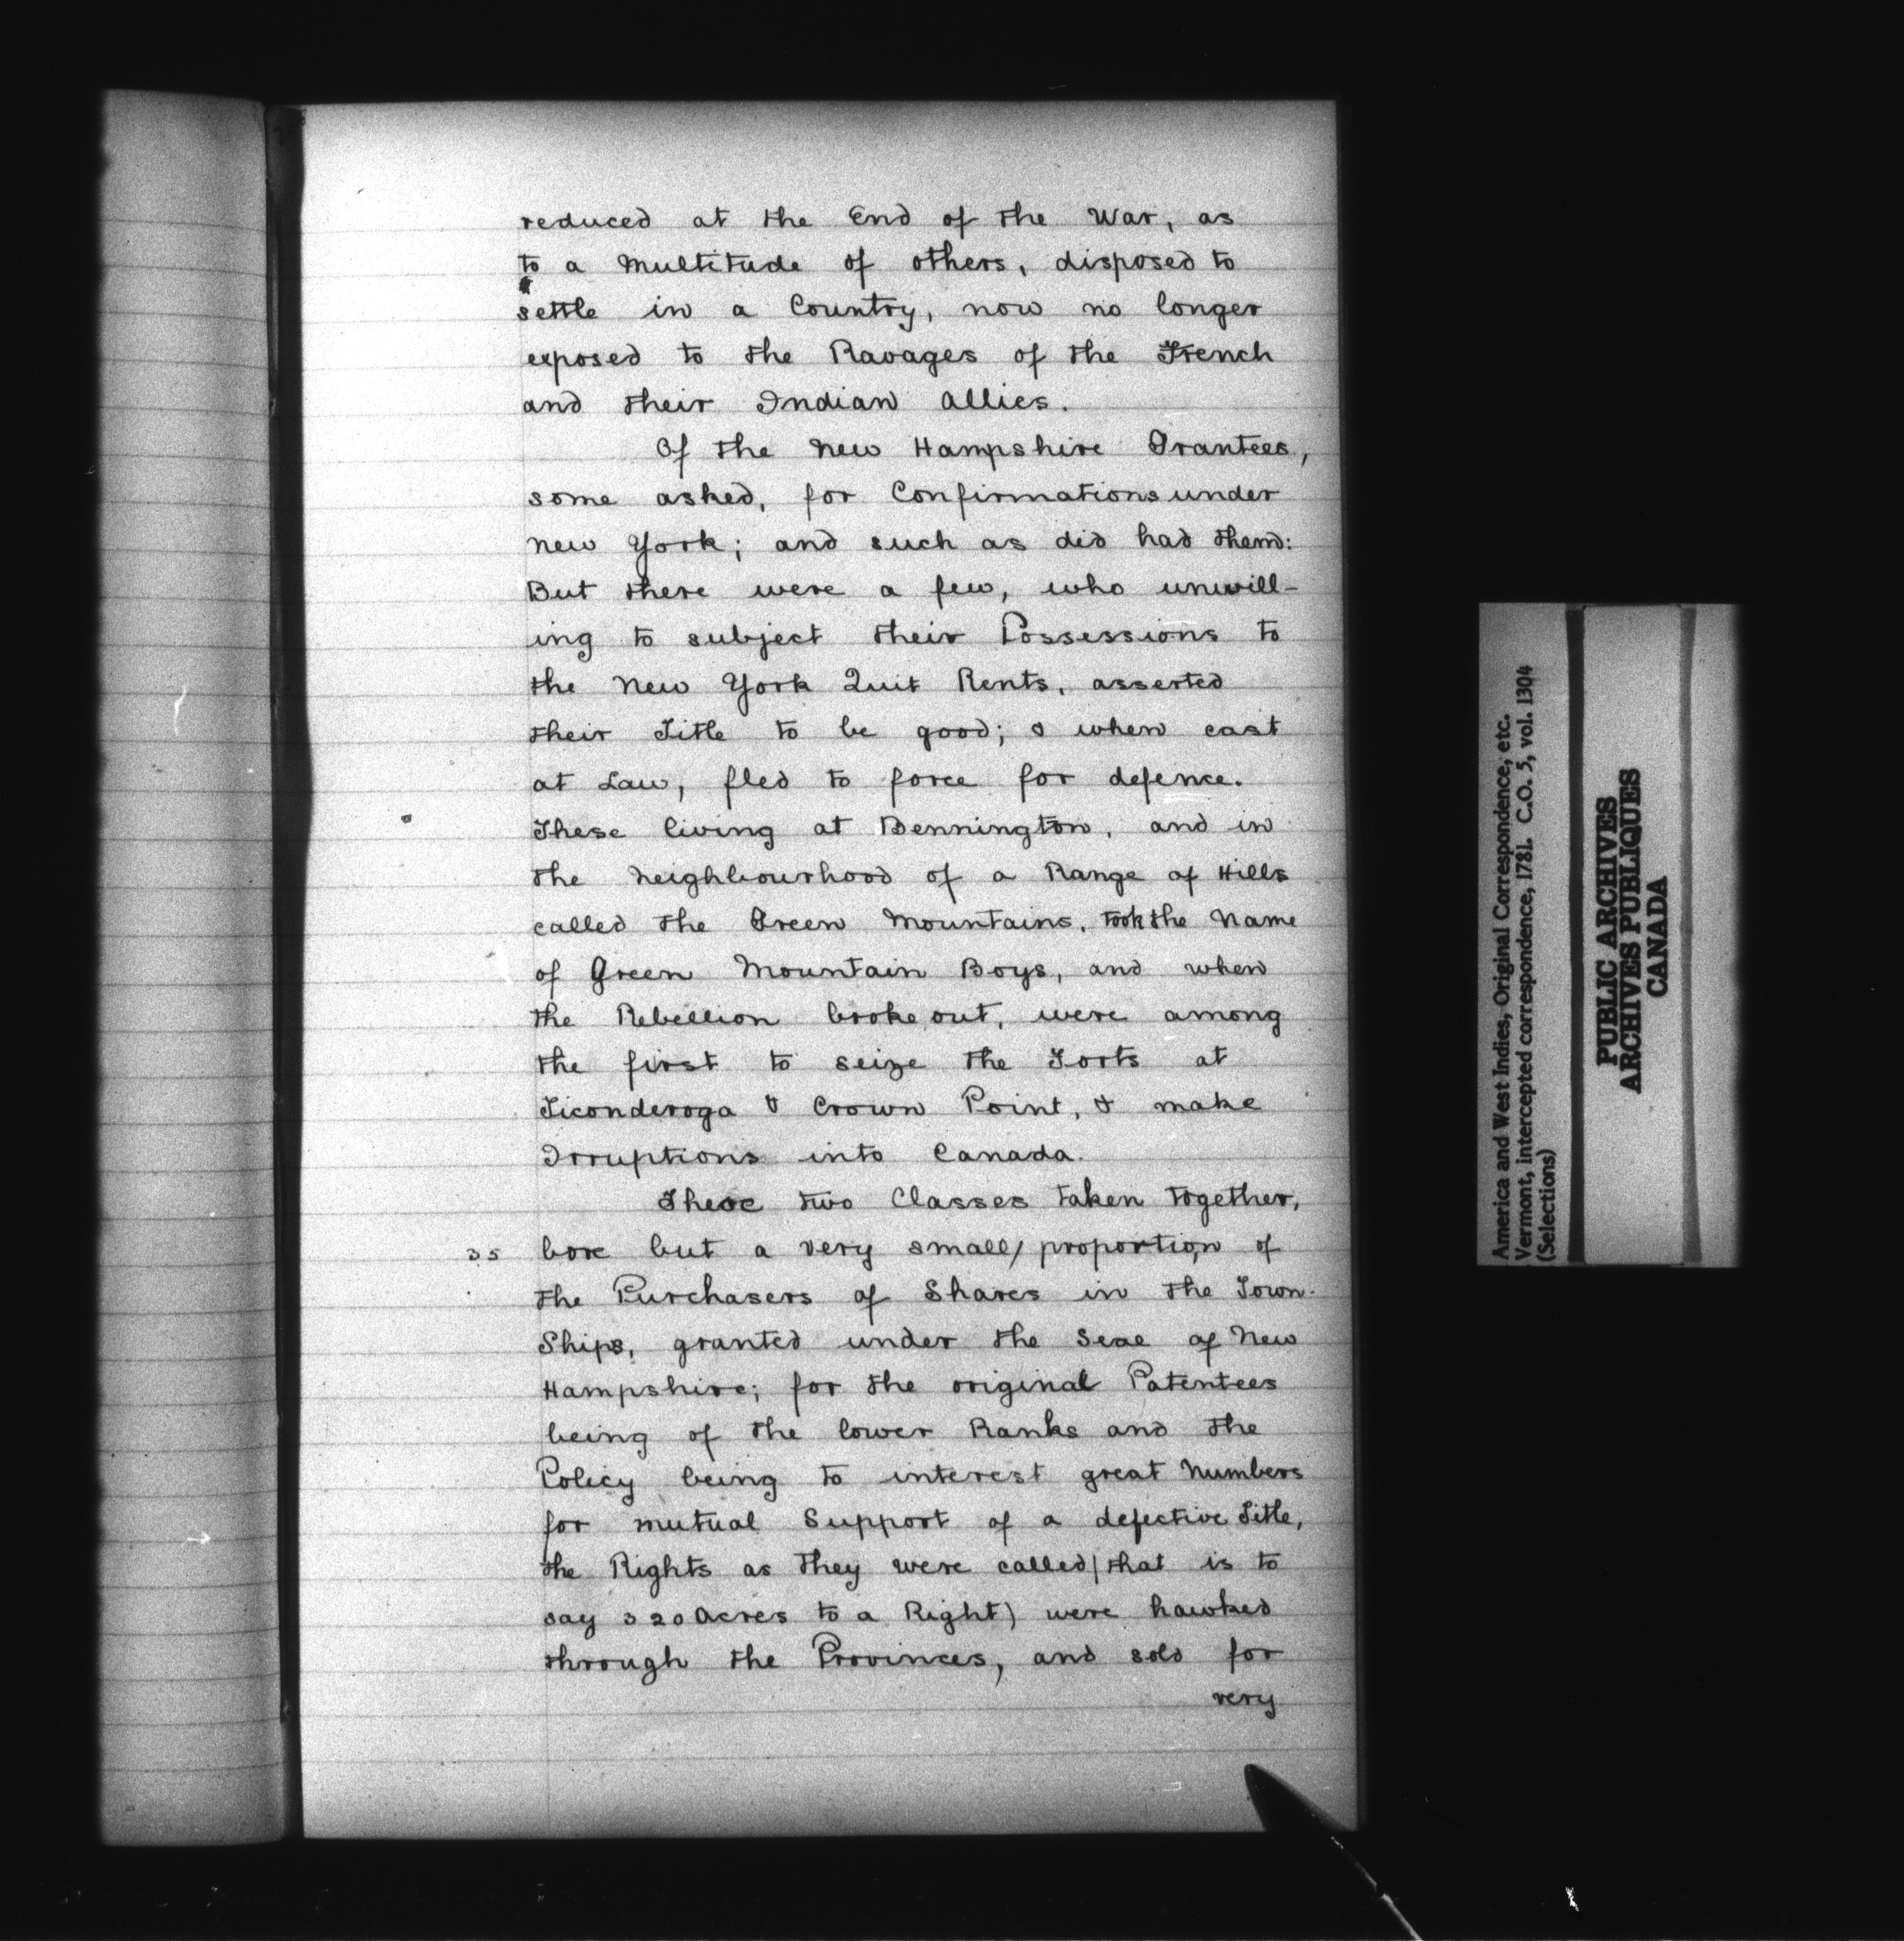 reduced at the End of the War, as
to a Multitude of others, disposed to
settle in a Country, now no longer
exposed to the Ravages of the French
and their Indian Allies.
Of the New Hampshire Grantees,
some asked, for Confirmations under
New York; and such as did had them:
But there were a few, who unwill-
ing to subject their Possessions to
the New York Quit Rents, asserted
their Title to be good; & when cast
at Law, fled to force for defence.
These living at Bennington, and in
the Neighbourhood of a Range of Hills
called the Green Mountains, took the Name
of Green Mountain Boys, and when
the Rebellion broke out, were among
the first to seize the Forts at
Ticonderoga & Crown Point, & make
Irruptions into Canada.
These two Classes taken together,
35 bore but a very small/proportion of
the Purchasers of Shares in the Town-
Ships, granted under the Seal of New
Hampshire; for the original Patentees
being of the lower Ranks and the
Policy being to interest great Numbers
for mutual Support of a defective Title,
the Rights as they were called (that is to
say 320 Acres to a Right) were hawked
through the Provinces, and sold for
very
America and West Indies, Original Correspondence, etc.
Vermont, intercepted correspondence, 1781. C.O. 5, vol. 1304
(Selections)
PUBLIC ARCHIVES
ARCHIVES PUBLIQUES
CANADA